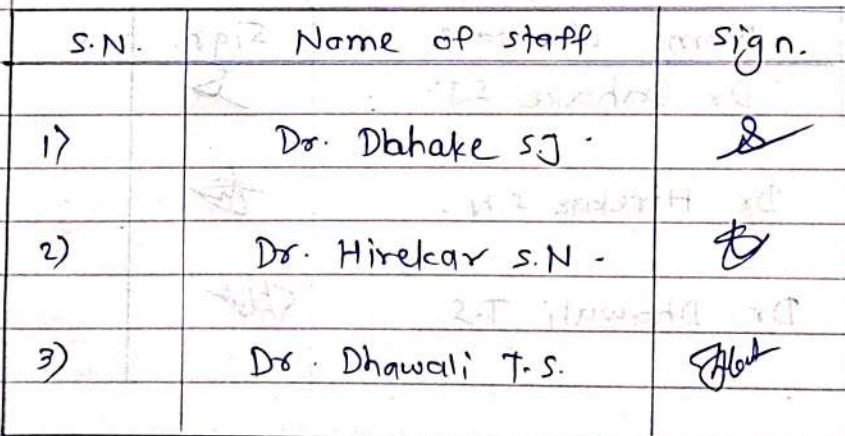 S.N. Name of staff Sign.
1) Dr. Dbhake S.J.
2) Dr. Hirekar S.N.
3) Dr. Dhawali T.S.